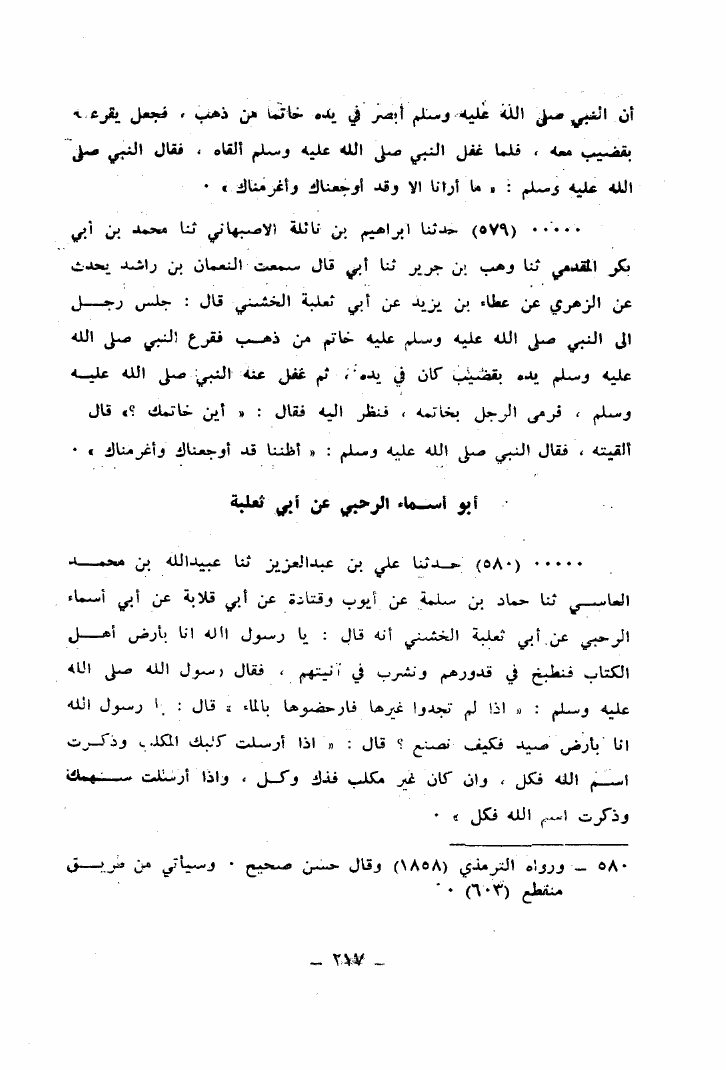 أن النبي صلى الله عليه وسلم أبصر في يده خاتما من ذهب ، فجعل يقرعه
بقضيب معه ، فلما غفل النبي صلى الله عليه وسلم ألقاه ، فقال النبي صلى
الله عليه وسلم : « ما أرانا الا وقد أوجعناك وأغرمناك » ٠
٠٠٠٠٠ (٥٧٩) حدثنا ابراهيم بن نائلة الاصبهاني ثنا محمد بن أبي
بكر المقدمي ثنا وهب بن جرير ثنا أبي قال سمعت النعمان بن راشد يحدث
عن الزهري عن عطاء بن يزيد عن أبي ثعلبة الخشني قال : جلس رجــل
الى النبي صلى الله عليه وسلم عليه خاتم من ذهــب فقرع النبي صلى الله
عليه وسلم يده بقضيب كان في يده ، ثم غفل عنه النبي صلى الله عليــه
وسلم ، فرمى الرجل بخاتمه ، فنظر اليه فقال : « أين خاتمك ؟» قال
ألقيته ، فقال النبي صلى الله عليه وسلم : « أظننا قد أوجعناك وأغرمناك » ٠
أبو أســماء الرحبي عن أبي ثعلبة
٠٠٠٠٠ (٥٨٠) حــدثنا علي بن عبدالعزيز ثنا عبيدالله بن محمــد
العاســي ثنا حماد بن سلمة عن أيوب وقتادة عن أبي قلابة عن أبي أسماء
الرحبي عن أبي ثعلبة الخشني أنه قال : يا رسول الله انا بأرض أهــل
الكتاب فنطبخ في قدورهم ونشرب في آنيتهم ، فقال رسول الله صلى الله
عليه وسلم : « اذا لم تجدوا غيرها فارحضوها بالماء » قال : يا رسول الله
انا بأرض صيد فكيف نصنع ؟ قال : « اذا أرسلت كلبك المكلب وذكــرت
اســم الله فكل ، وان كان غير مكلب فذك وكــل ، واذا أرسلت ســهمك
وذكرت اسم الله فكل » ٠
٥٨٠ ــ ورواه الترمذي (١٨٥٨) وقال حسن صحيح ٠ وسيأتي من طريــق
منقطع (٦٠٣) ٠
ــ ٢١٧ ــ